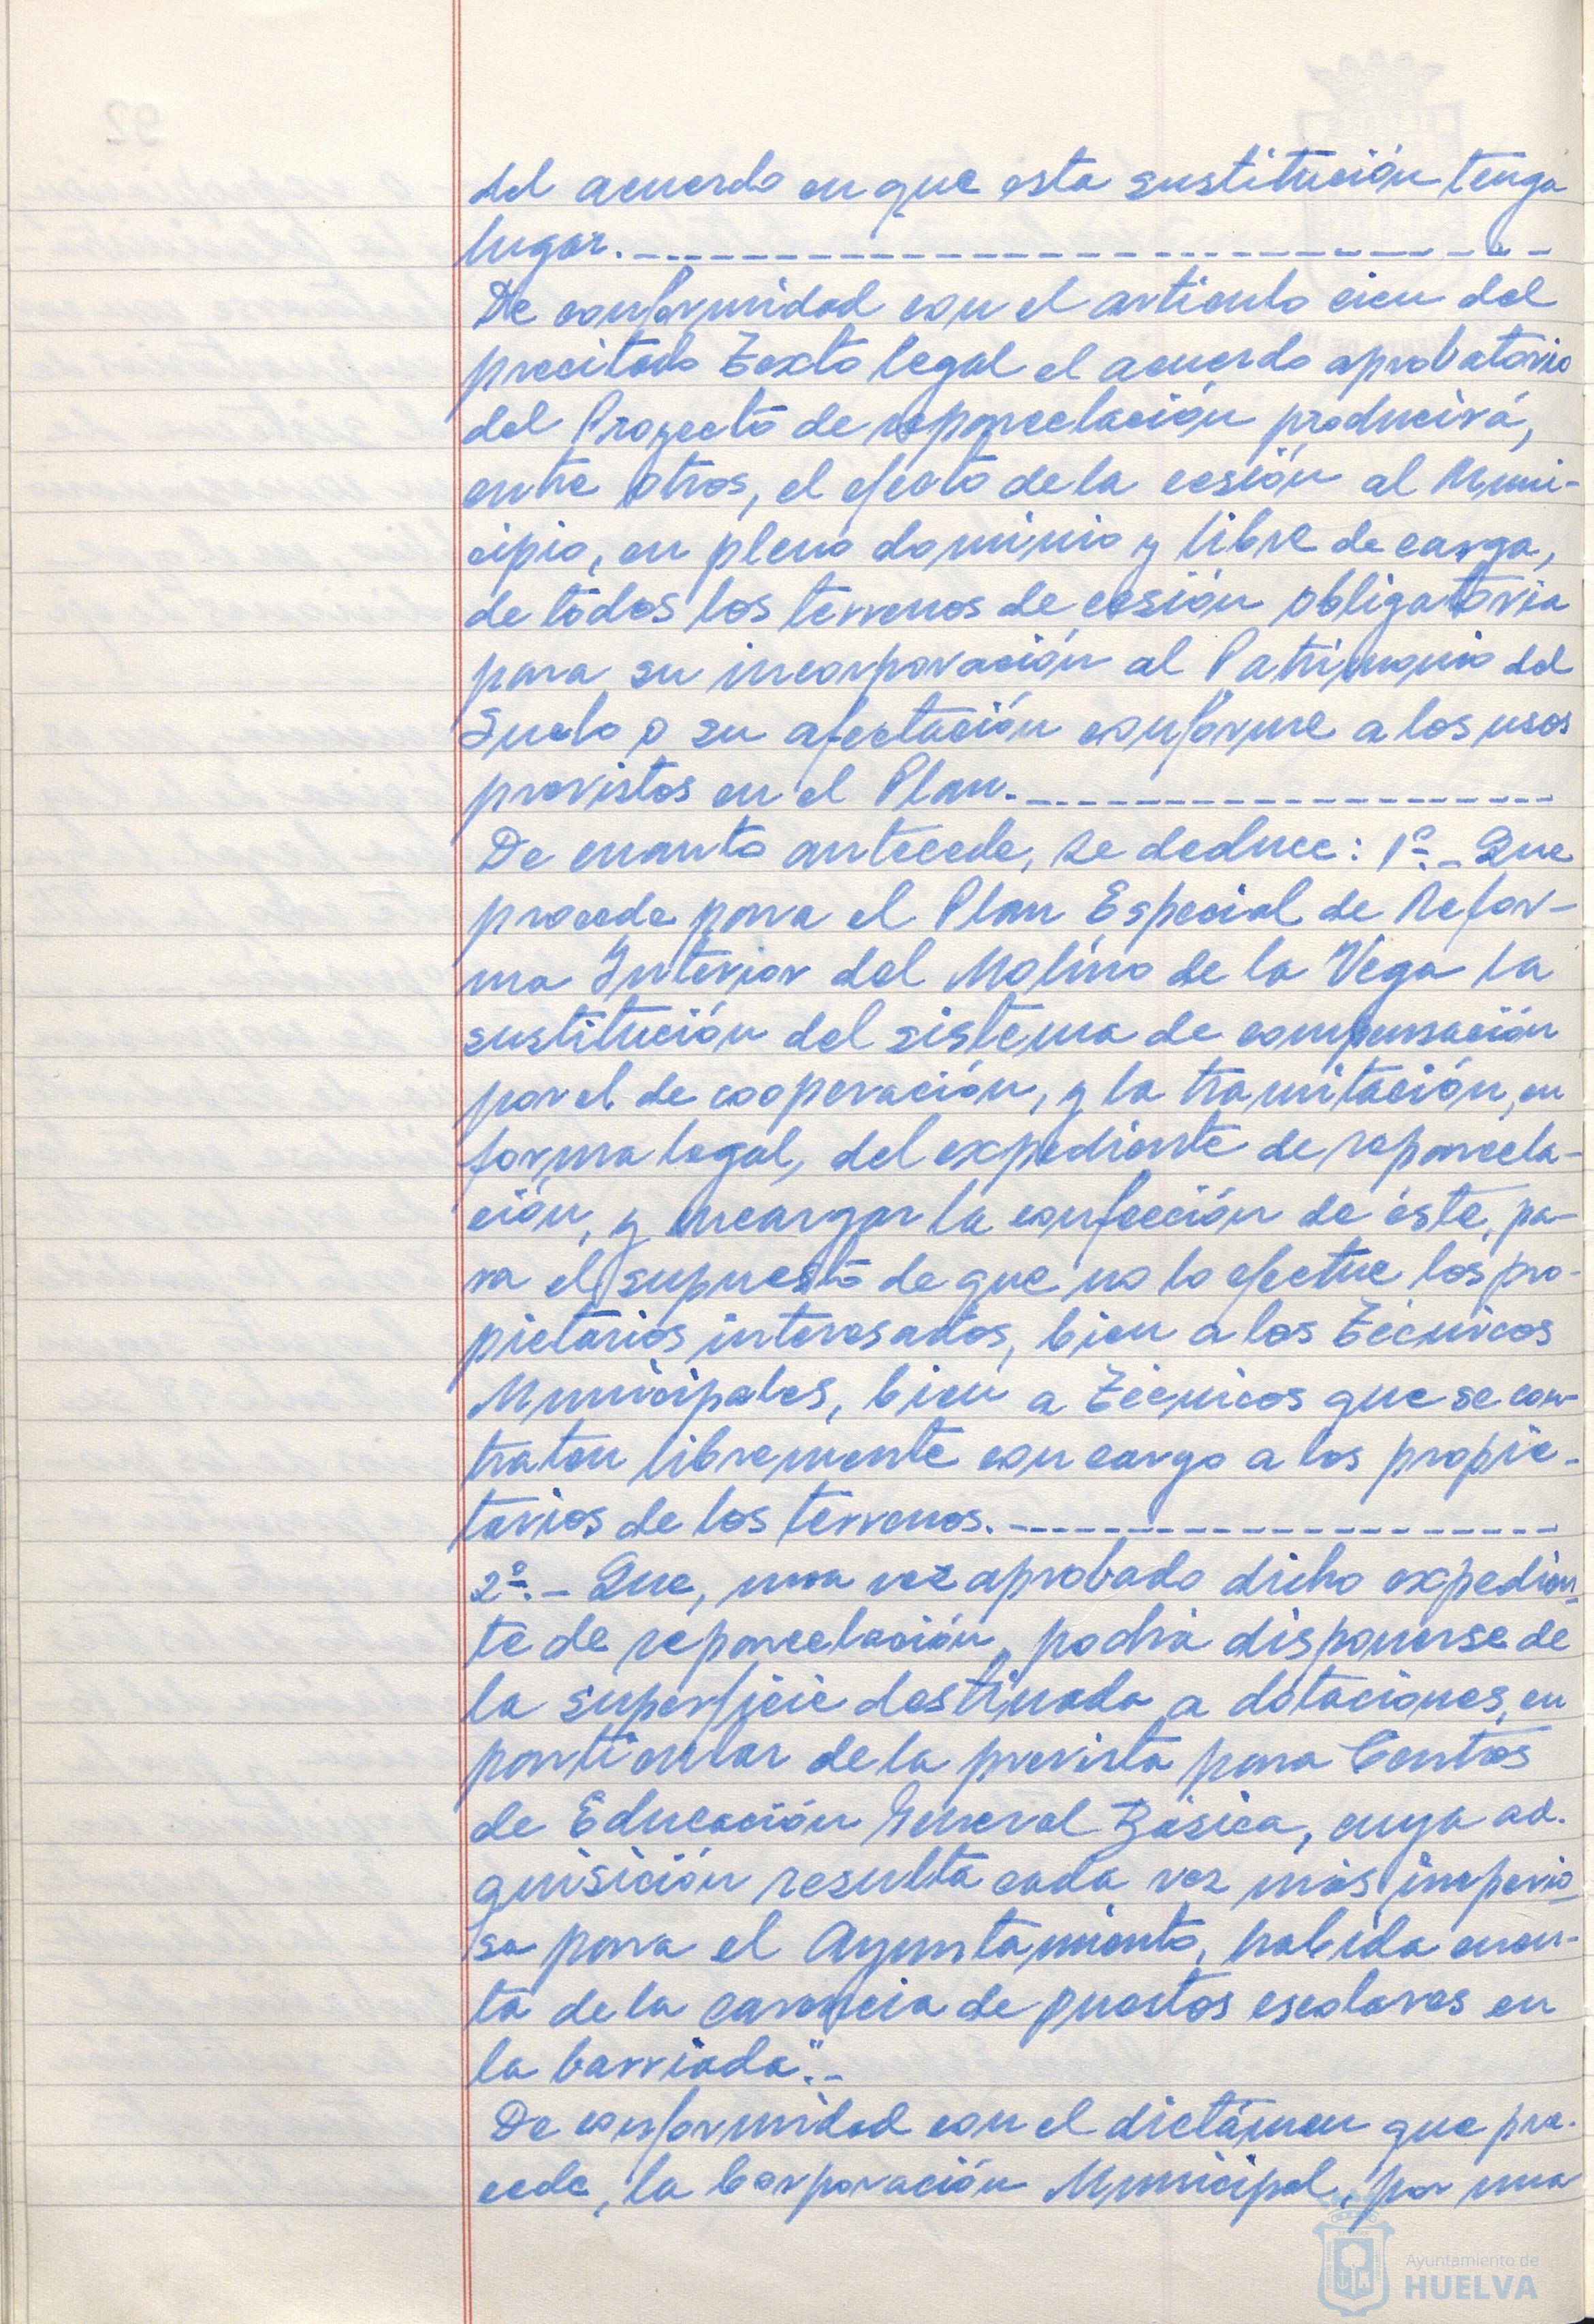 del acuerdo en que esta sustitución tenga
lugar.------------------------------
De conformidad con el artículo cien del
precitado Texto legal el acuerdo aprobatorio
del Proyecto de reparcelación producirá,
entre otros, el efecto de la cesión al Muni-
cipio, en pleno dominio y libre de carga,
de todos los terrenos de cesión obligatoria
para su incorporación al Patrimonio del
Suelo o su afectación conforme a los usos
previstos en el Plan.--------------------
De cuanto antecede, se deduce: 1º.- Que
procede para el Plan Especial de Refor-
ma Interior del Molino de la Vega la
sustitución del sistema de compensación
por el de cooperación, y la tramitación, en
forma legal, del expediente de reparcela-
ción, y encargar la confección de éste, pa-
ra el supuesto de que no lo efectue los pro-
pietarios interesados, bien a los Técnicos
Municipales, bien a Técnicos que se con-
traten libremente con cargo a los propie-
tarios de los terrenos.--------------------
2º.- Que, una vez aprobado dicho expedien-
te de reparcelación, podrá disponerse de
la superficie destinada a dotaciones, en
particular de la prevista para Centros
de Educación General Básica, cuya ad-
quisición resulta cada vez más imperio-
sa para el Ayuntamiento, habida cuen-
ta de la carencia de puestos escolares en
la barriada".-
De conformidad con el dictámen que pre-
cede, la Corporación Municipal, por una
Ayuntamiento de
HUELVA